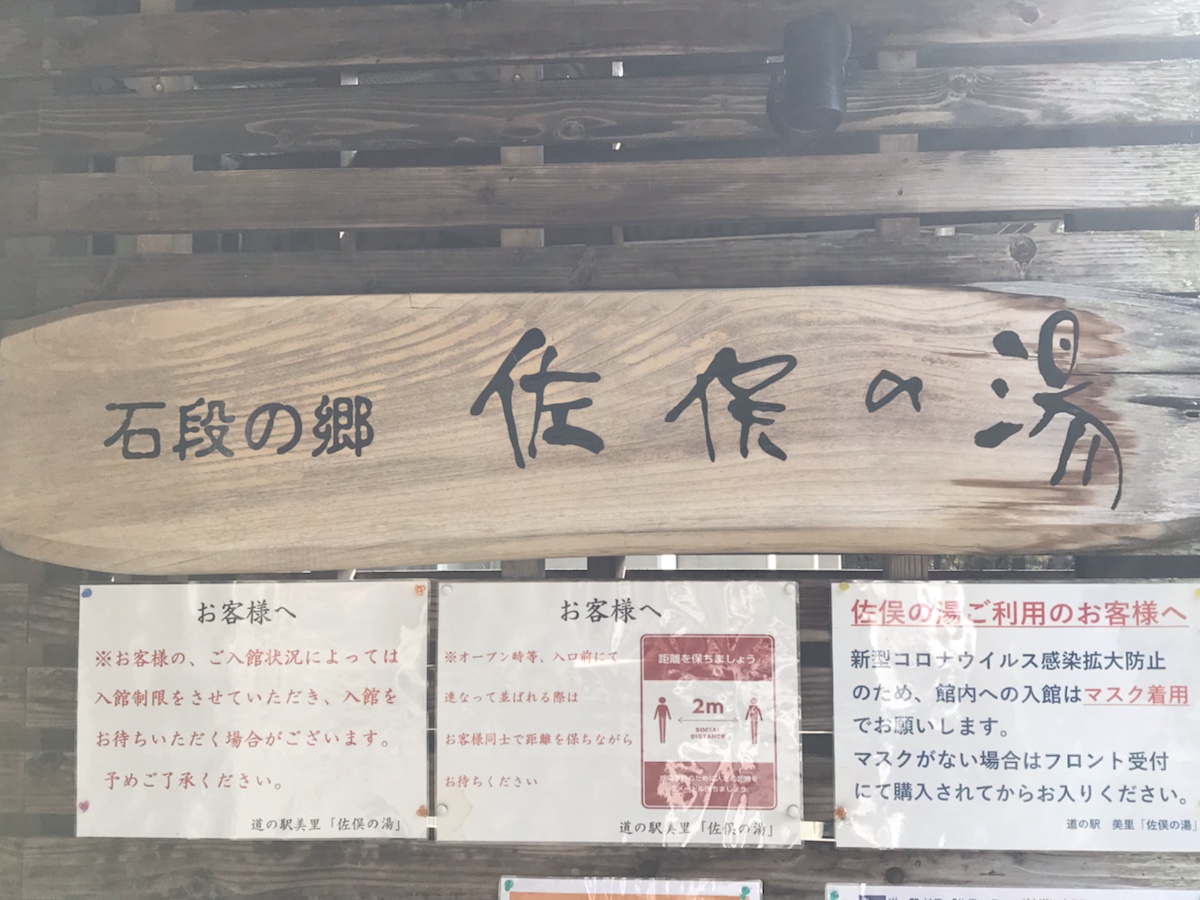 石段の郷 佐俣の湯
お客様へ
※お客様の、ご入館状況によっては
入館制限をさせていただき、入館を
お待ちいただく場合がございます。
予めご了承ください。
道の駅美里「佐俣の湯」
お客様へ
※オープン時等、入口前にて
連なって並ばれる際は
お客様同士で距離を保ちながら
お待ちください
距離を保ちましょう
2m
SOCIAL
DISTANCE
道の駅美里「佐俣の湯」
佐俣の湯ご利用のお客様へ
新型コロナウイルス感染拡大防止
のため、館内への入館はマスク着用
でお願いします。
マスクがない場合はフロント受付
にて購入されてからお入りください。
道の駅 美里「佐俣の湯」